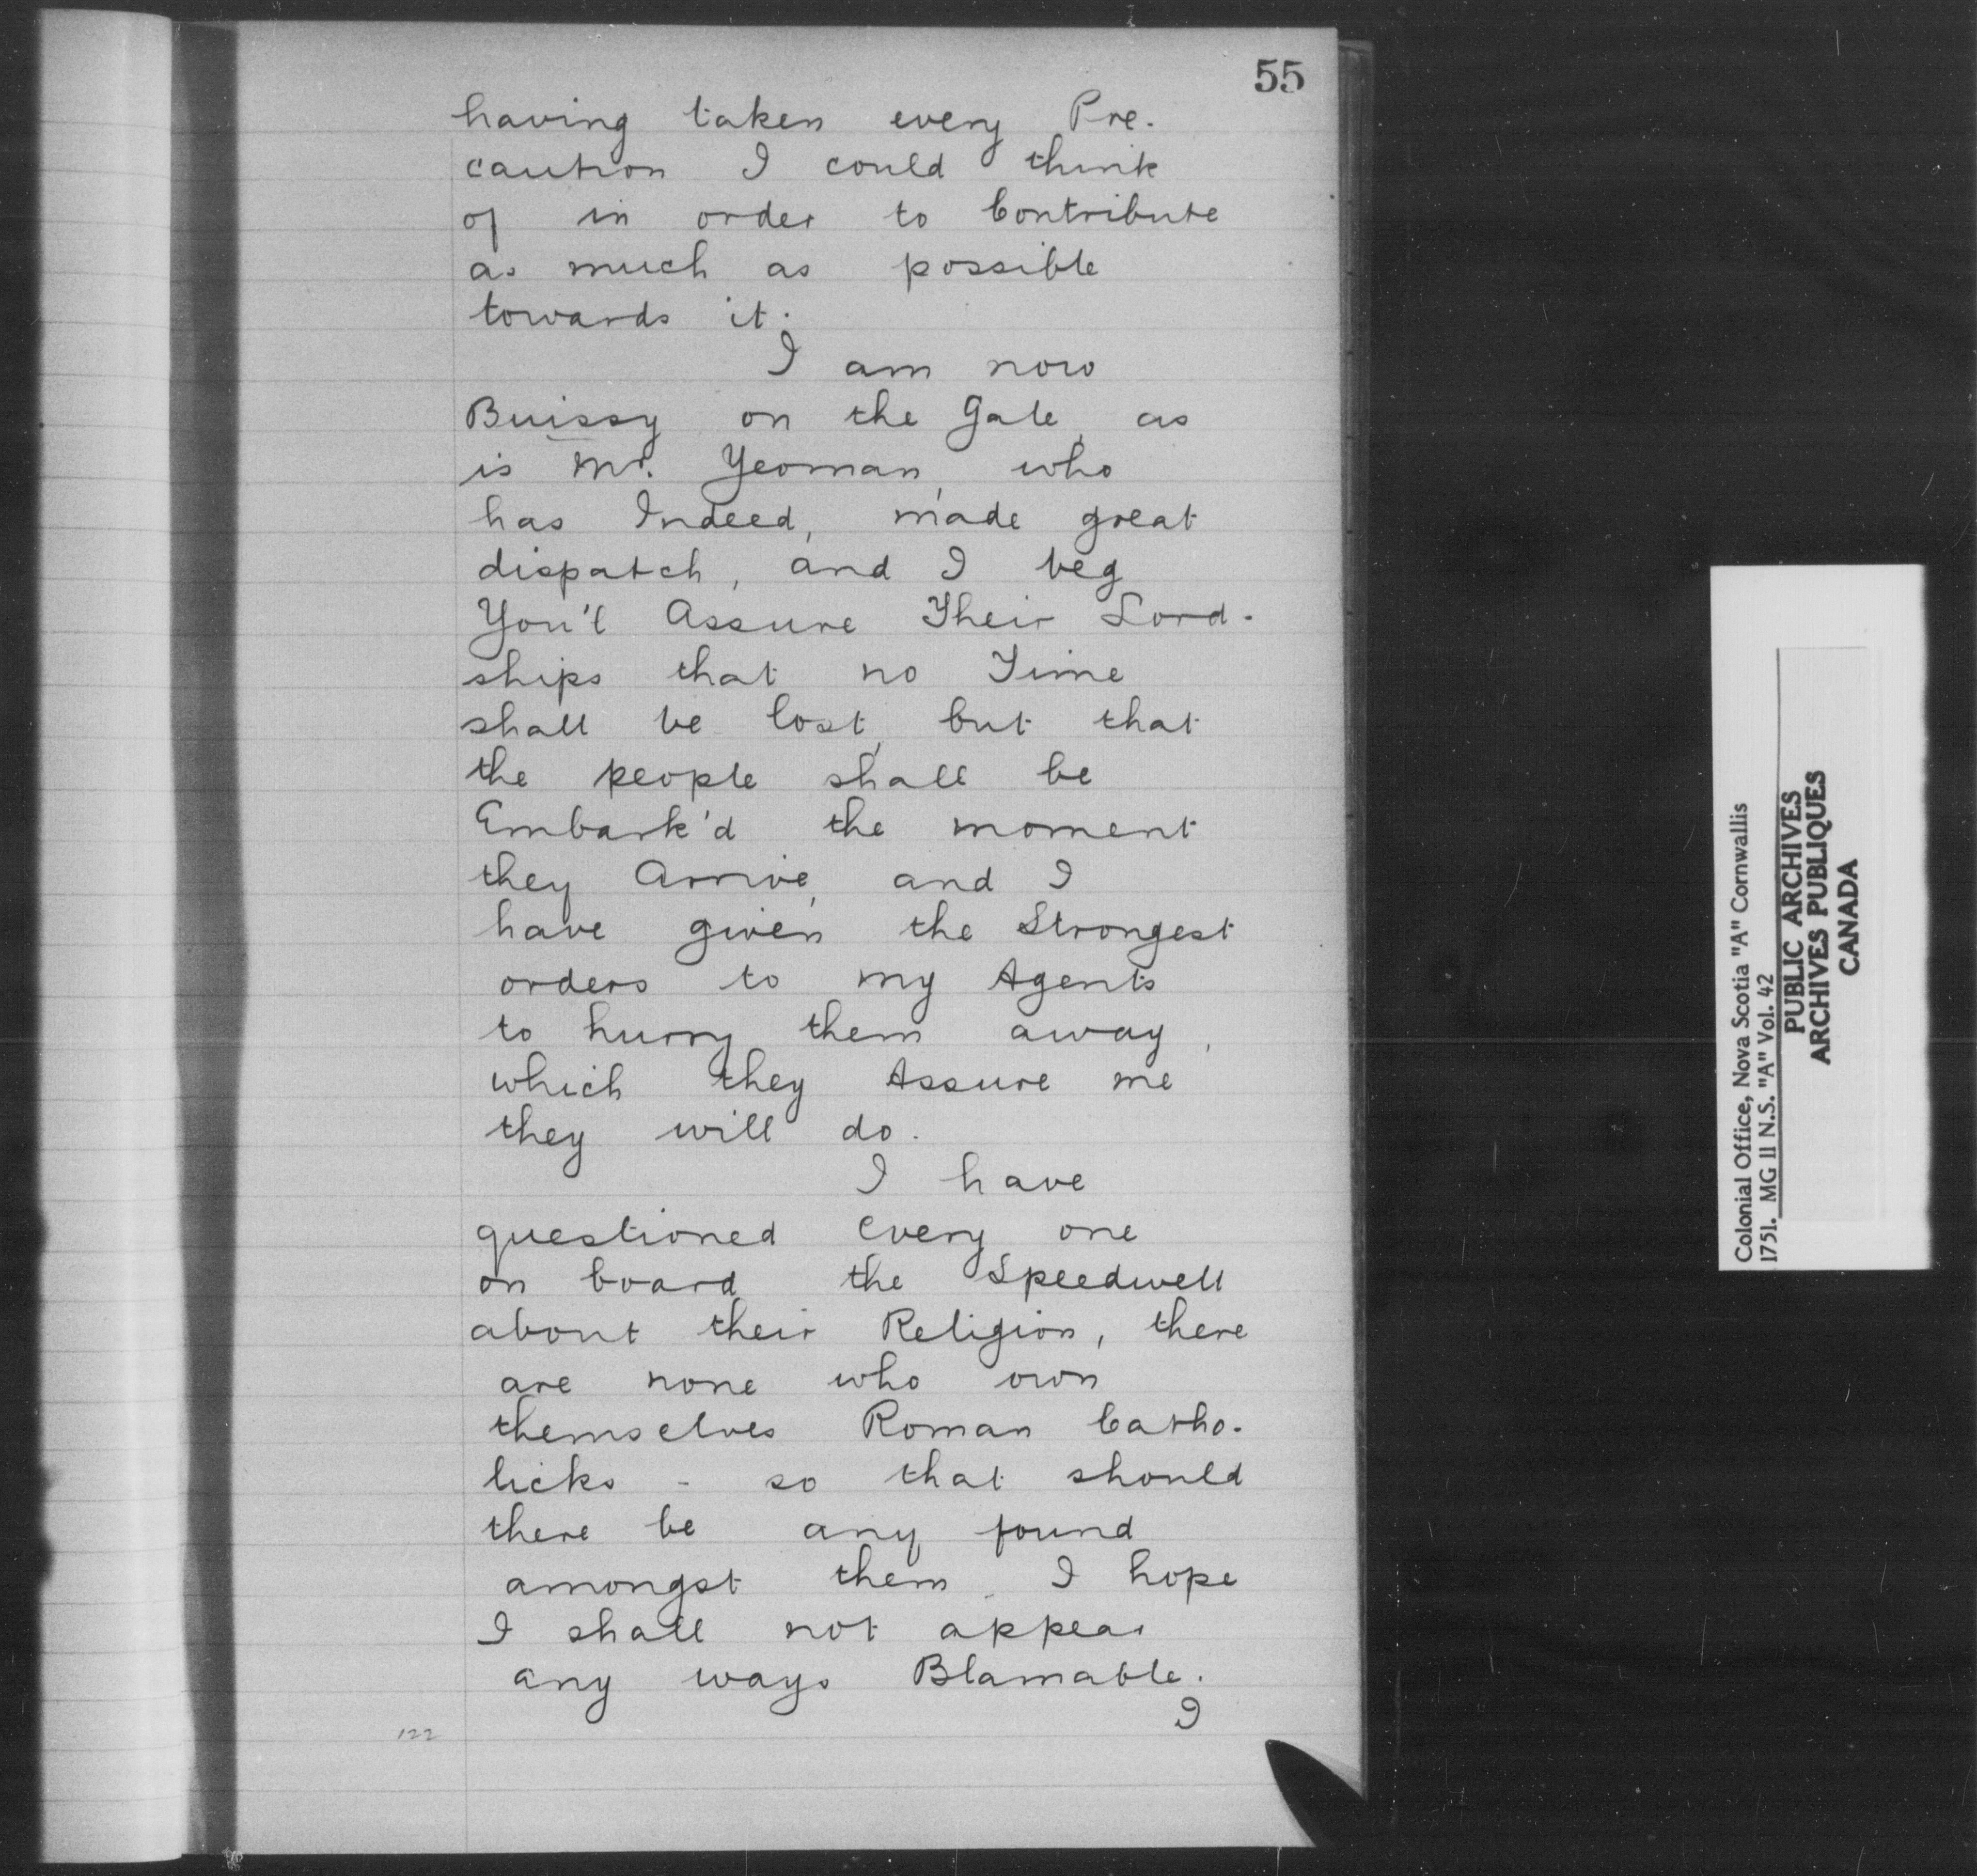 55
having taken every Pre-
caution I could think
of in order to Contribute
as much as possible
towards it.
I am now
Buissy on the Gale, as
is Mr. Yeoman, who
has Indeed, made great
dispatch, and I beg
You'l Assure Their Lord-
ships that no Time
shall be lost, but that
the people shall be
Embark'd the moment
they Arrive, and I
have given the Strongest
orders to my Agents
to hurry them away,
which they Assure me
they will do.
I have
questioned every one
on board the Speedwell
about their Religion, there
are none who own
themselves Roman Catho-
licks - so that should
there be any found
amongst them I hope
I shall not appear
any ways Blamable.
I
122
Colonial Office, Nova Scotia "A" Cornwallis
1751. MG 11 N.S. "A" Vol. 42
PUBLIC ARCHIVES
ARCHIVES PUBLIQUES
CANADA